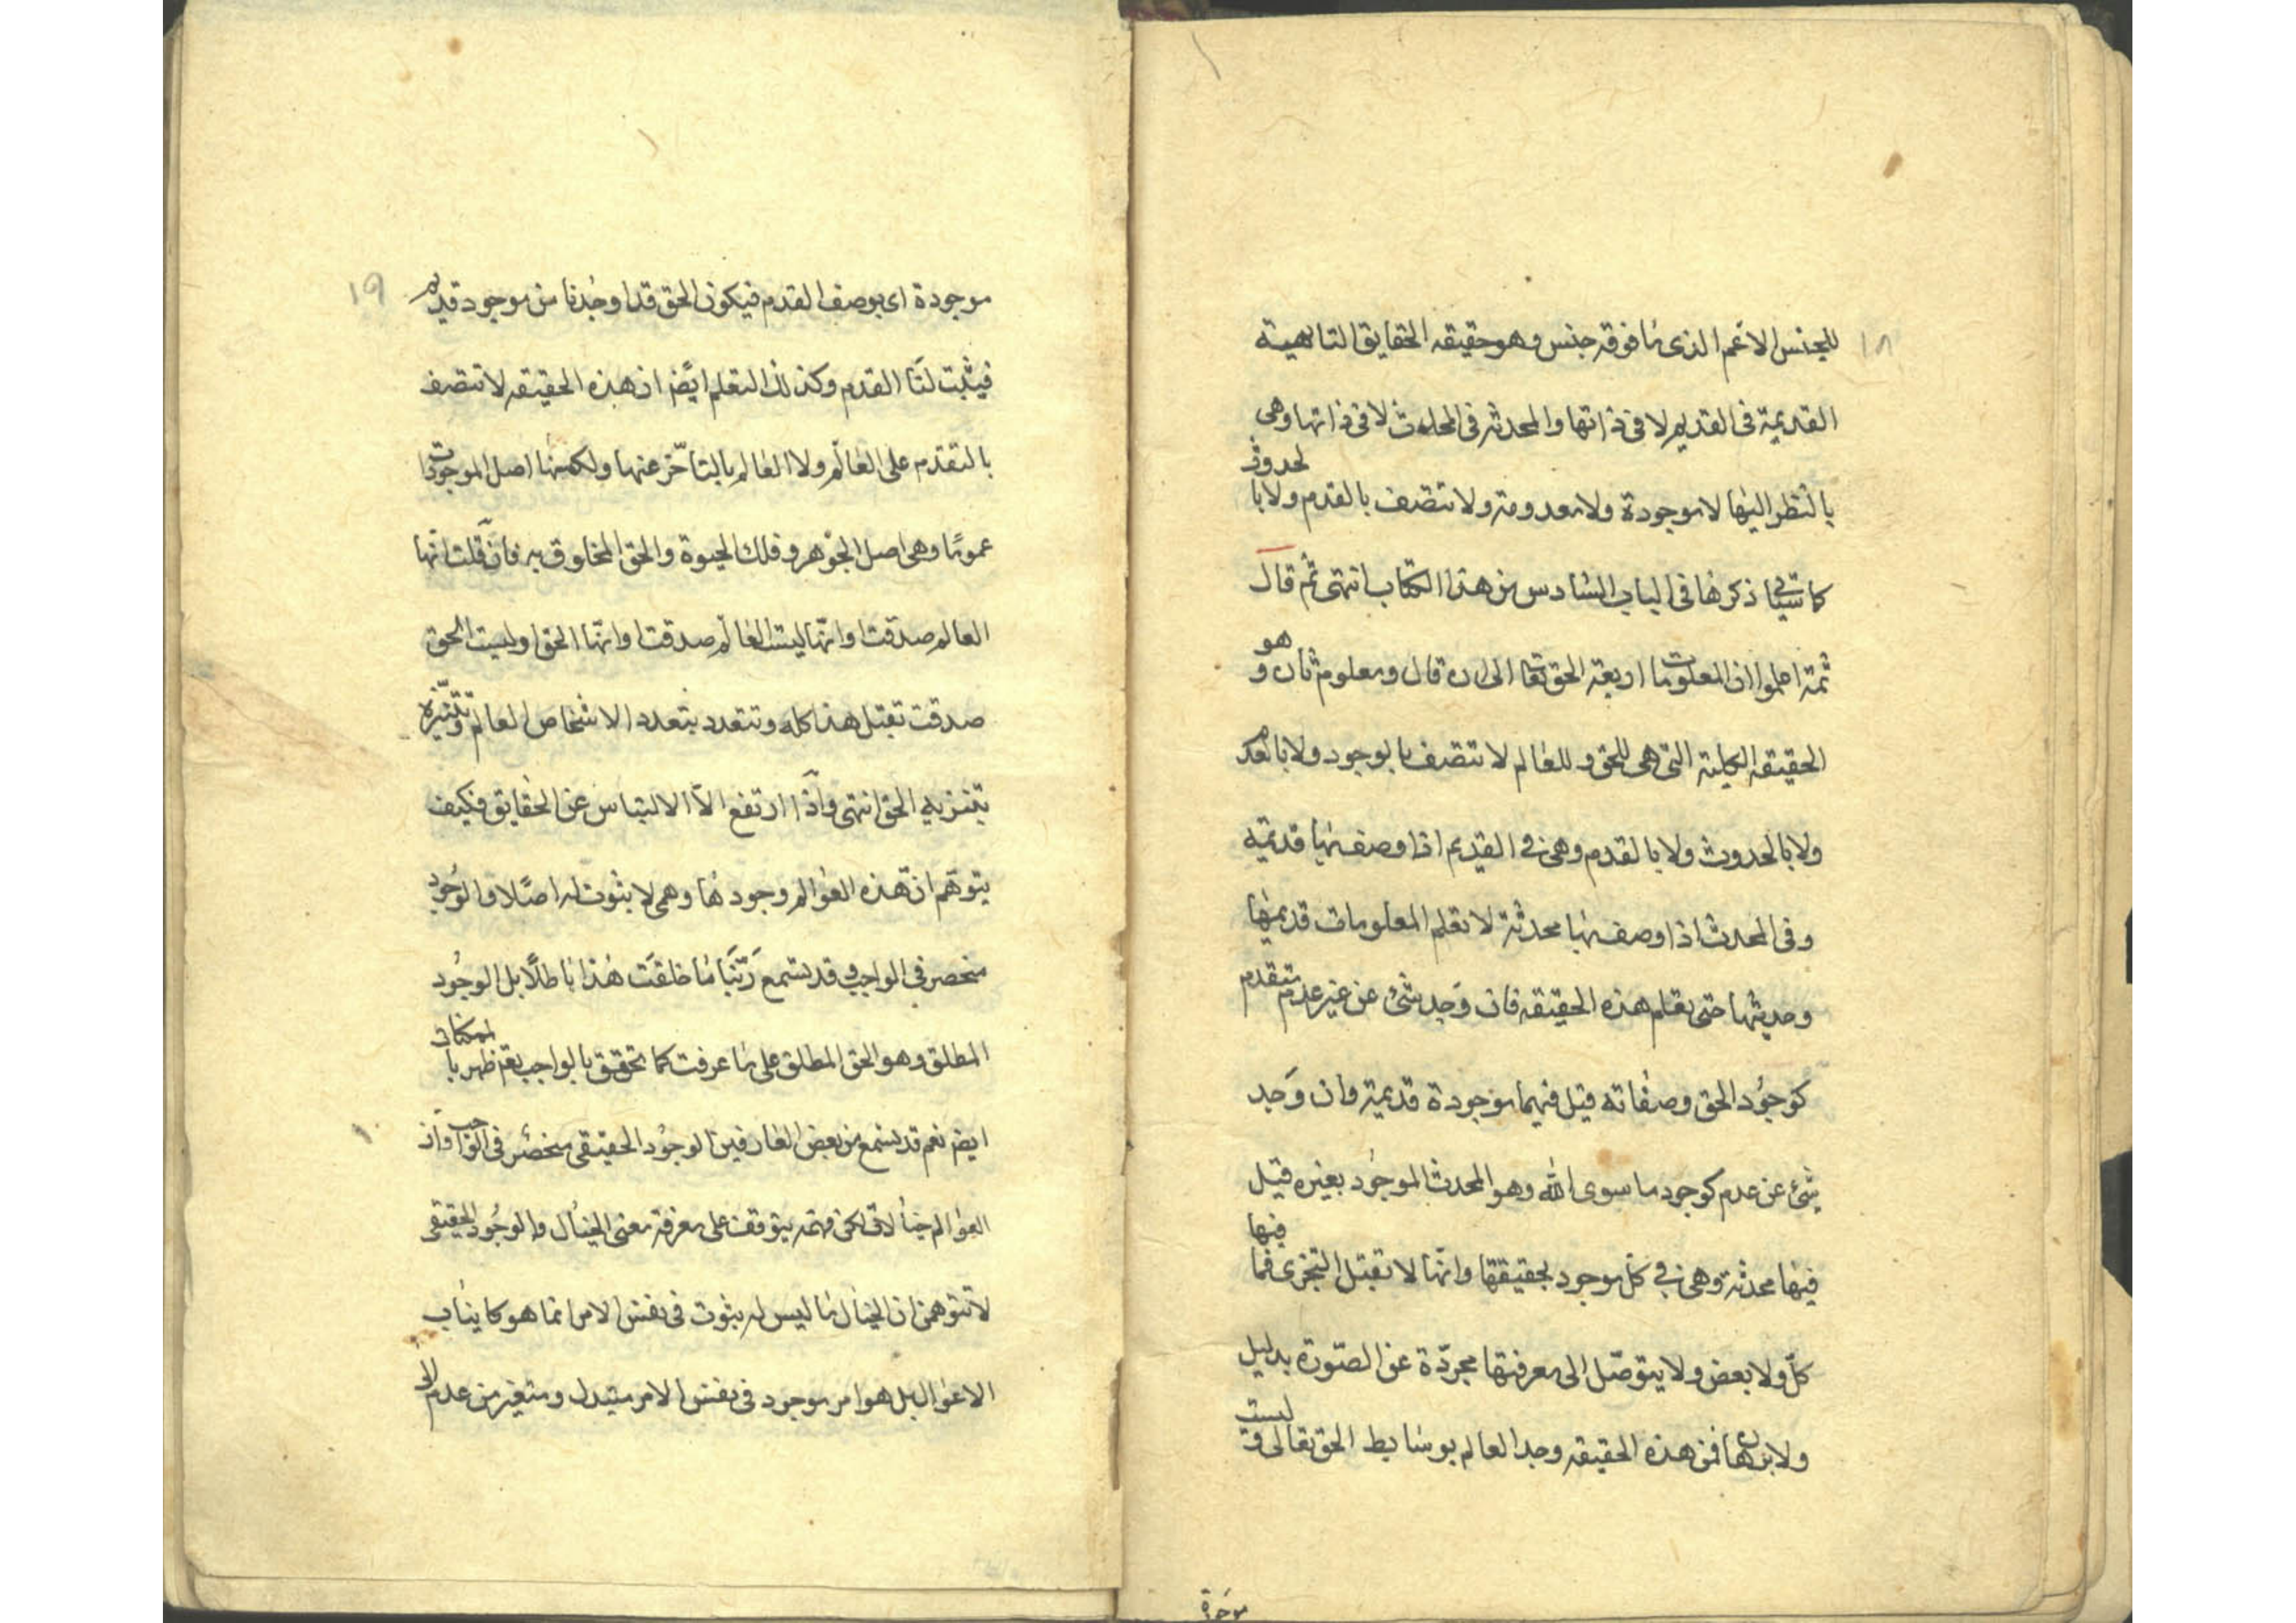 ١٨
للجنس الاعم الذى ما فوقه جنس وهو حقيقه الحقايق التاهية
القديمة فى القديم لا فى ذاتها والمحدثه فى المحدث لا فى ذاتها وهى
بالنظر اليها لا موجودة ولا معدومة ولا تتصف بالقدم ولا بالحدوث
كما سيأتى ذكرها فى الباب السادس من هذا الكتاب انتهى ثم قال
ثمة اعلموا ان المعلومات اربعة الحق تعا الى ان قال ومعلوم ثان وهو
الحقيقه الكلية التى هى للحق وللعالم لا تتصف بالوجود ولا بالعدم
ولا بالحدوث ولا بالقدم وهى فى القديم اذا وصف بها قديمة
وفى المحدث اذا وصف بها محدثة لا تعلم المعلومات قديمها
وحديثها حتى يعلم هذه الحقيقه فان وجد شئ عن غير عدم متقدم
كوجود الحق وصفاته قيل فيها موجودة قديمة وان وجد
شئ عن عدم كوجود ما سوى الله وهو المحدث الموجود بغيره قيل
فيها محدثة وهى فى كل موجود بحقيقتها وانها لا تقبل التجزى فما فيها
كل ولا بعض ولا يتوصل الى معرفتها مجردة عن الصورة بدليل
ولا ببرهان فمن هذه الحقيقه وجد العالم بوسايط الحق تعالى وليست
موجودة
١٩
موجودة اى بوصف القدم فيكون الحق قد اوجدنا من موجود قديم
فيثبت لنا القدم وكذلك لتعلم ايضا ان هذه الحقيقه لا تتصف
بالتقدم على العالم ولا العالم بالتأخر عنها ولكنها اصل الموجودات
عموما وهى اصل الجوهر وفلك الحيوة والحق المخلوق به فان قلت انها
العالم صدقت وانها ليست العالم صدقت وانها الحق وليست الحق
صدقت تقبل هذا كله وتتعدد بتعدد الاشخاص العالم وتتنزه
بتنزيه الحق انتهى واذا ارتفع الآ الالتباس عن الحقايق فكيف
يتوهم ان هذه العوالم وجودها وهمى لا ثبوت له اصلا والوجود
منحصر فى الواجب وقد يسمع ربنا ما خلقت هذا باطلا بل الوجود
المطلق وهو الحق المطلق على ما عرفت كما تحقق بالواجب تعم ظهر بالممكنات
ايضا نعم قد يسمع من بعض العارفين الوجود الحقيقى منحصر فى الواجب وان
العوالم خيالات لكن فهمه يتوقف على معرفة معنى الخيال والوجود الحقيقى
لا تتوهمن ان الخيال ما ليس له ثبوت فى نفس الامر انما هو كانياب
الاغوال بل هو امر موجود فى نفس الامر متبدل ومتغير من عدم الى